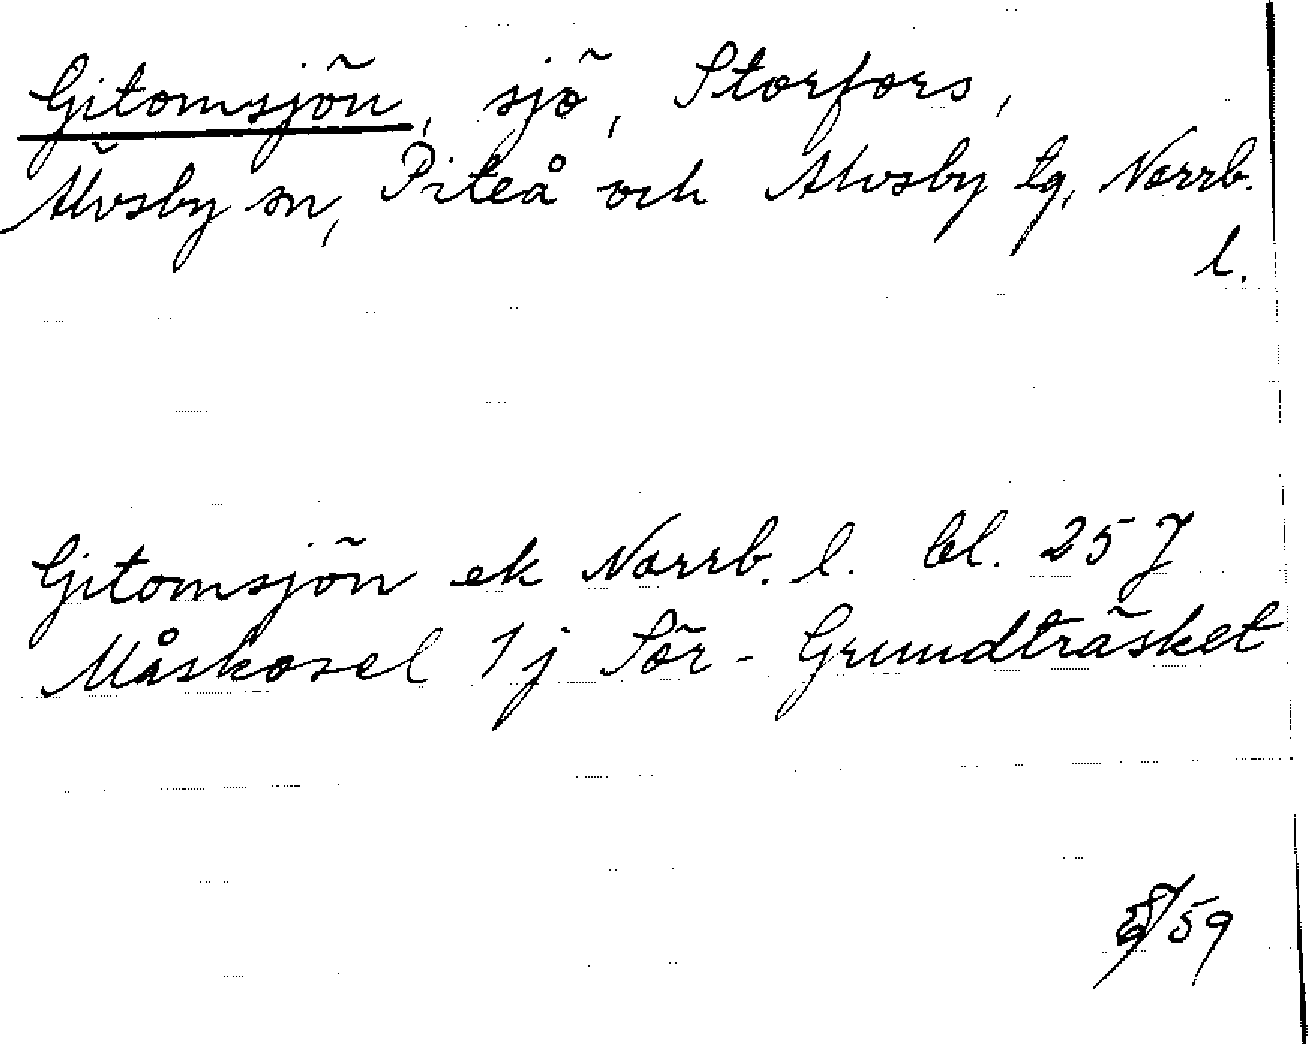 Gitomsjön, sjö, Storfors,
Älvsby sn, Piteå och Älvsby tg, Norrb.
l.
Gitomsjön ek Norrb. l. bl. 25 J
Måskosel 1j Sör-Grundträsket
59